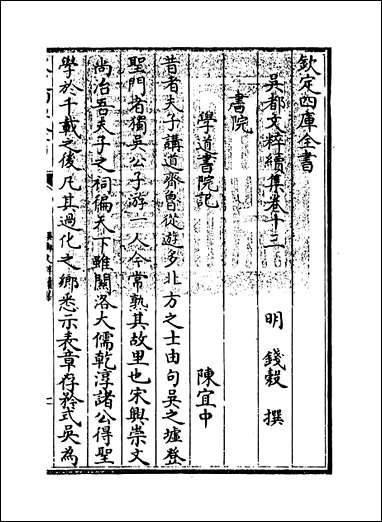 欽定四庫全書
吳都文粹續集卷十三
明 錢穀 撰
書院
學道書院記
陳宜中
昔者夫子講道齊魯從遊多北方之士由句吳之墟登
聖門者獨吳公子游一人今常孰其故里也宋興崇文
尚治吾夫子之祠徧天下雖關洛大儒乾淳諸公得聖
學於千載之後凡其過化之鄉悉示表章存矜式吳為